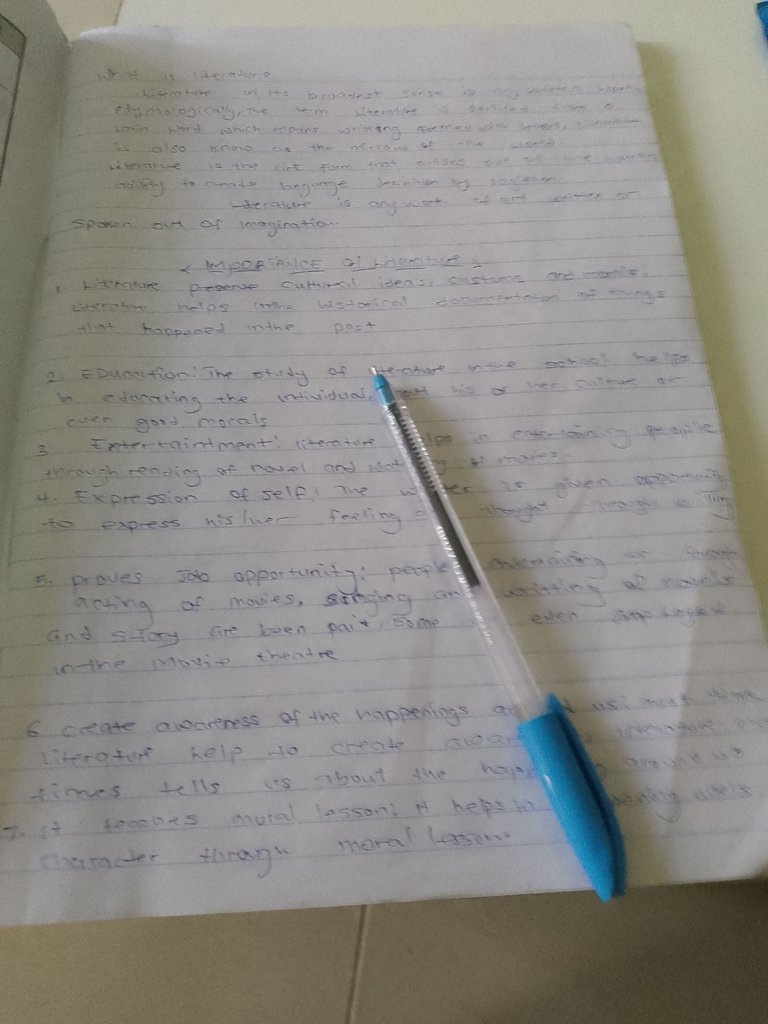 What is literature.
Literature in its broadest sense is any written
etymologically, the term literature is derived from a
latin word which means writing formed with letters, literature
is also know as the mirrow of the world.
Literature is the art form that arises out of the human
ability to create language
Literature is any work of art written or
Spoken out of imagination.
< IMPORTANCE of Literature >
1. Literature preserve cultural ideas, customs and morals.
Literature helps inthe historical documentation of things
that happened inthe past
2. EDucation: The study of literature in the school helps
in educating the individual, his or her culture or
even good morals
3. Entertaintment: literature helps in entertaining people
through reading of novel and of movies
4. Expression of self: The writer is given opportunity
to express his/her feeling thought through
5. proves Job opportunity: people entertaining us through
acting of movies, singing and writting of novels
and story are been paid, some even employed
in-the movie theatre
6 create awareness of the happenings us: most time
literature help to create literature
times tells us about the around us
7. it teaches moral lesson; it helps in
character through moral lesson.